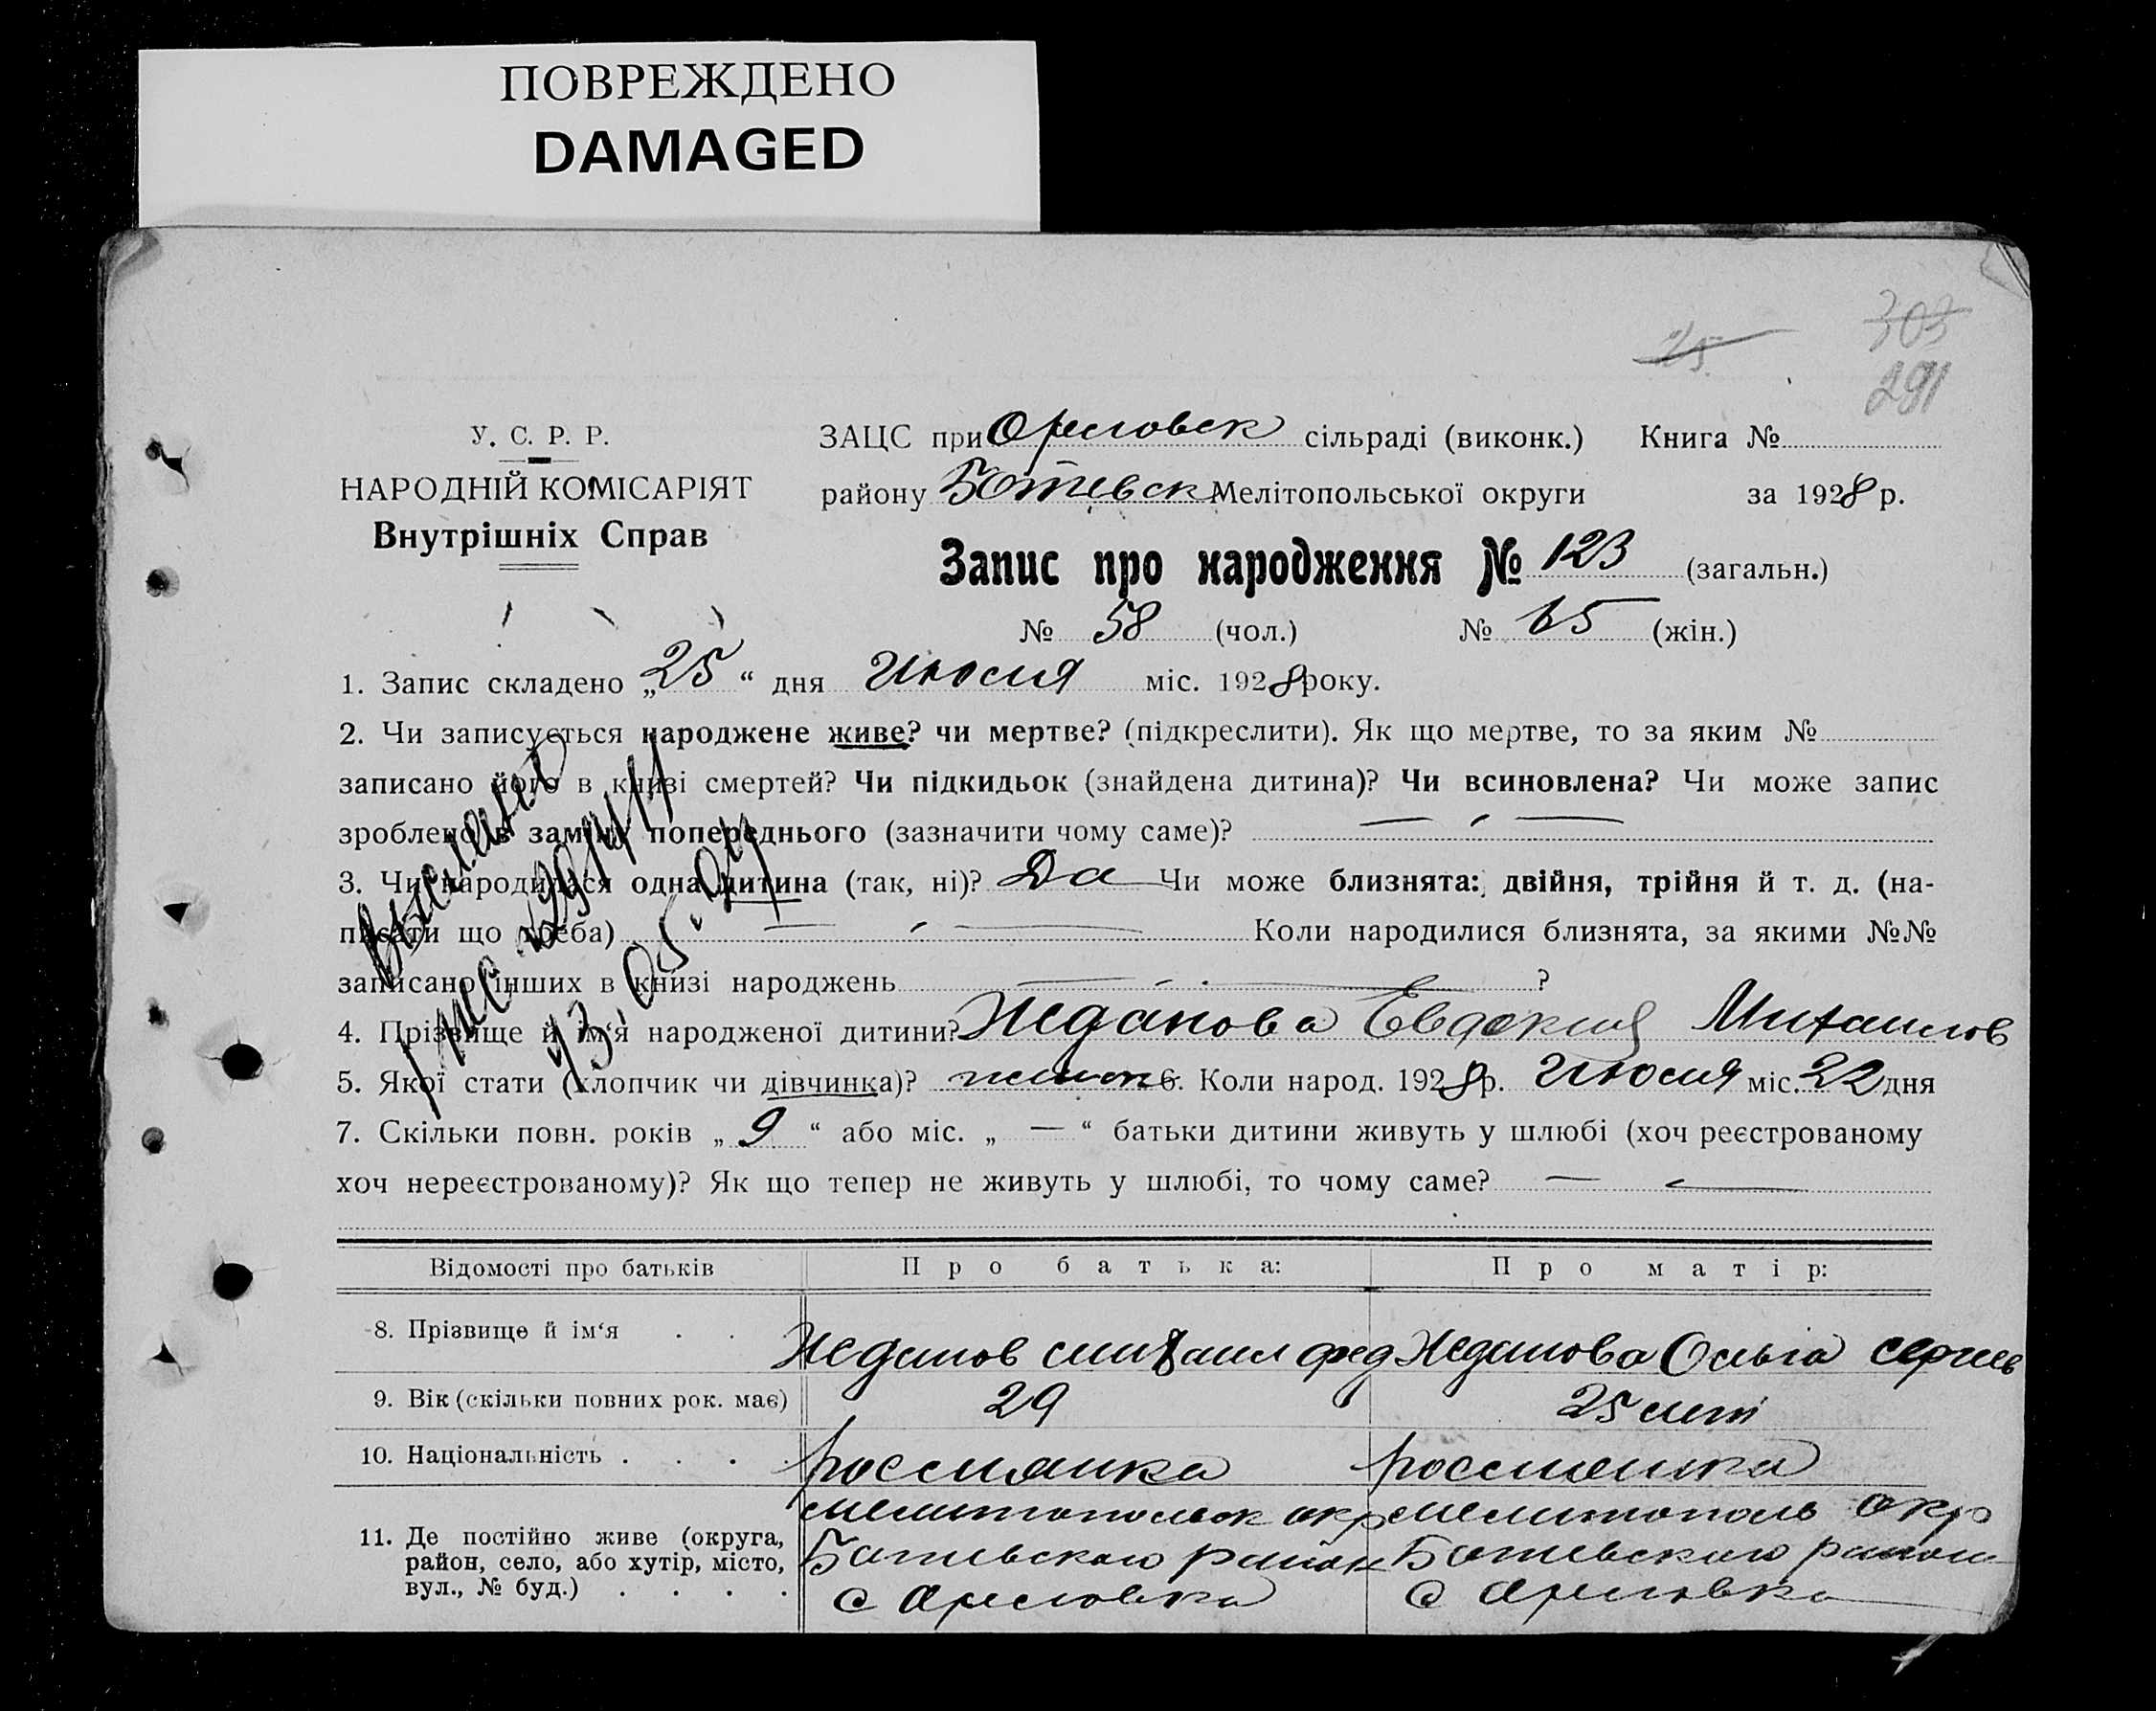 ПОВРЕЖДЕНО
DAMAGED
25.
303
291
У. С. Р. Р.
НАРОДНІЙ КОМІСАРІЯТ
Внутрішніх Справ
ЗАЦС при Орловск сільраді (виконк.) Книга №
району Ботиевск Мелітопольської округи за 1928 р.
Запис про народження № 123 (загальн.)
№ 58 (чол.) № 65 (жін.)
1. Запис складено „25“ дня Июля міс. 1928 року.
2. Чи записується народжене живе? чи мертве? (підкреслити). Як що мертве, то за яким №
записано його в книзі смертей? Чи підкидьок (знайдена дитина)? Чи всиновлена? Чи може запис
зроблено в заміну попереднього (зазначити чому саме)?
3. Чи народилася одна дитина (так, ні)? Да Чи може близнята: двійня, трійня й т. д. (на-
писати що треба) Коли народилися близнята, за якими №№
записано інших в книзі народжень ?
4. Прізвище й ім‘я народженої дитини? Жданова Евдокия Михайлов
5. Якої стати (хлопчик чи дівчинка)? женск 6. Коли народ. 1928 р. Июля міс. 22 дня
7. Скільки повн. років „9“ або міс. „—“ батьки дитини живуть у шлюбі (хоч реєстрованому
хоч нереєстрованому)? Як що тепер не живуть у шлюбі, то чому саме?
Выслано
Відомості про батьків Про батька: Про матір:
8. Прізвище й ім‘я Жданов Михаил фед Жданова Ольга Сергеев
9. Вік (скільки повних рок. має) 29 25 лет
10. Національність россиянка россиянка
11. Де постійно живе (округа, район, село, або хутір, місто, вул., № буд.)
Мелитопольск окр Мелитополь окр
Ботиевского район Ботиевского района
с Орловка с Орловка